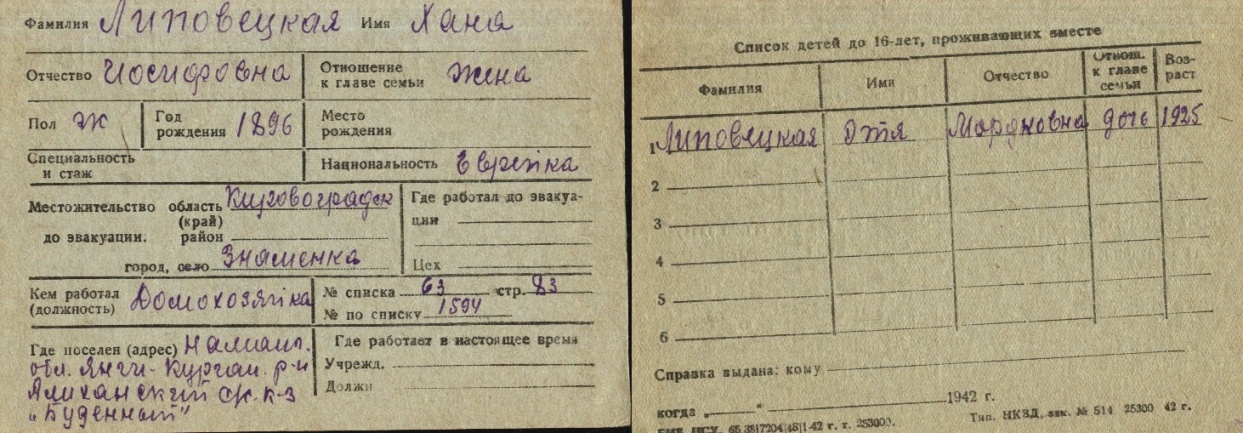 Фамилия Липовецкая Имя Хана
Отчество Иосифовна Отношение к главе семьи жена
Пол ж Год рождения 1896 Место рождения
Специальность и стаж Национальность Еврейка
Местожительство до эвакуации. область (край) Кировоградск
район
город, село Знаменка
Где работал до эвакуации
Цех
Кем работал (должность) Домохозяйка
№ списка 63 стр. 83
№ по списку 1594
Где поселен (адрес) Наманг.
обл. Янги-Курган. р-н
с/с. к-з
"Буденный"
Где работает в настоящее время
Учрежд.
Должн
Список детей до 16-лет, проживающих вместе
Фамилия Имя Отчество Отнош. к главе семьи Возраст
1 Липовецкая Мордковна дочь 1925
2
3
4
5
6
Справка выдана: кому
когда „ " 1942 г.
Тип. НКВД, зак. № 514 25300 42 г.